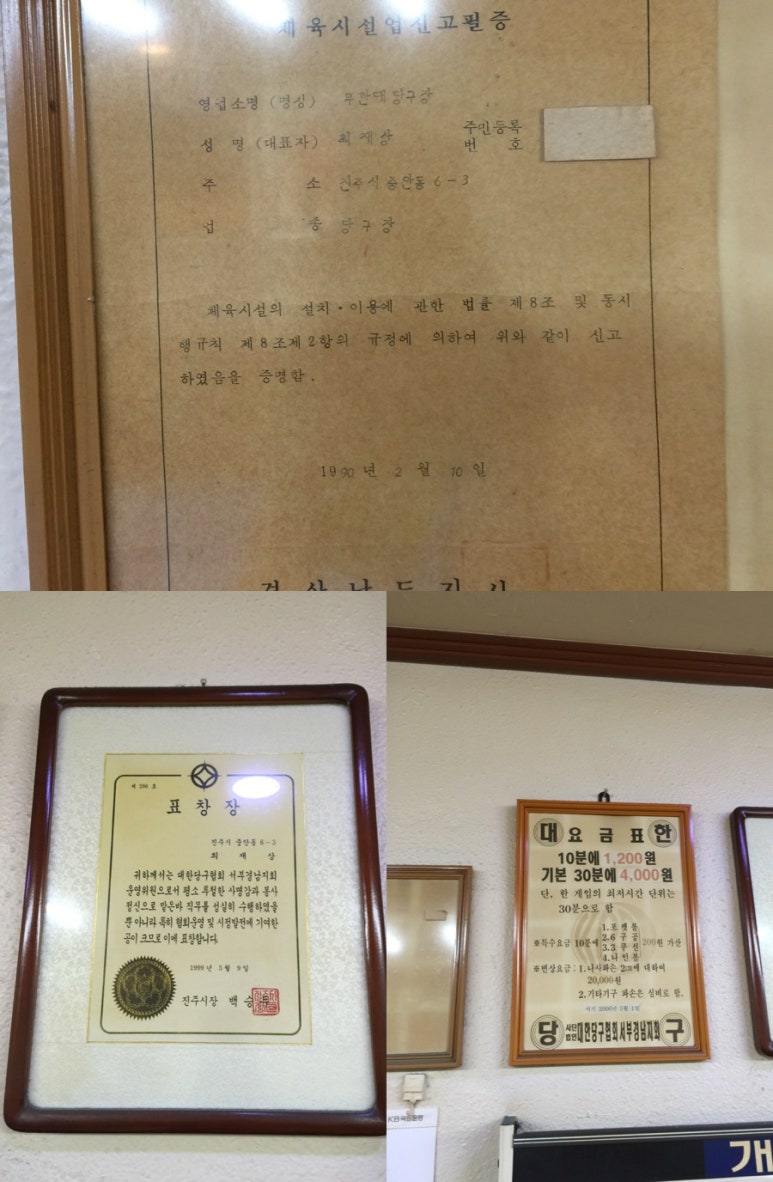 체육시설업신고필증
영업소명 (명칭) 무한대당구장
성 명 (대표자) 최재상 주민등록
번 호
주 소 진주시 중안동 6-3
업 종 당구장
체육시설의 설치·이용에 관한 법률 제8조 및 동시
행규칙 제8조제2항의 규정에 의하여 위와 같이 신고
하였음을 증명함.
1990년 2월 10일
경상남도지사
제 296 호
표창장
진주시 중안동 6-3
최 재 상
귀하께서는 대한당구협회 서부경남지회
운영위원으로서 평소 투철한 사명감과 봉사
정신으로 맡은바 직무를 성실히 수행하였을
뿐 아니라 특히 협회운영 및 시정발전에 기여한
공이 크므로 이에 표창합니다.
1999년 5월 9일
진주시장 백승두
대 요금표 한
10분에 1,200원
기본 30분에 4,000원
단, 한 게임의 최저시간 단위는
30분으로 함
※특수요금 10분에 1.포켓볼 2.6구공 3.3쿠션 4.나인볼 200원 가산
※변상요금 : 1.나사파손 2cm에 대하여
20,000원
2.기타기구 파손은 실비로 함.
서기 2000년 5월 1일
당 사단법인 대한당구협회서부경남지회 구
KB국민은행
개